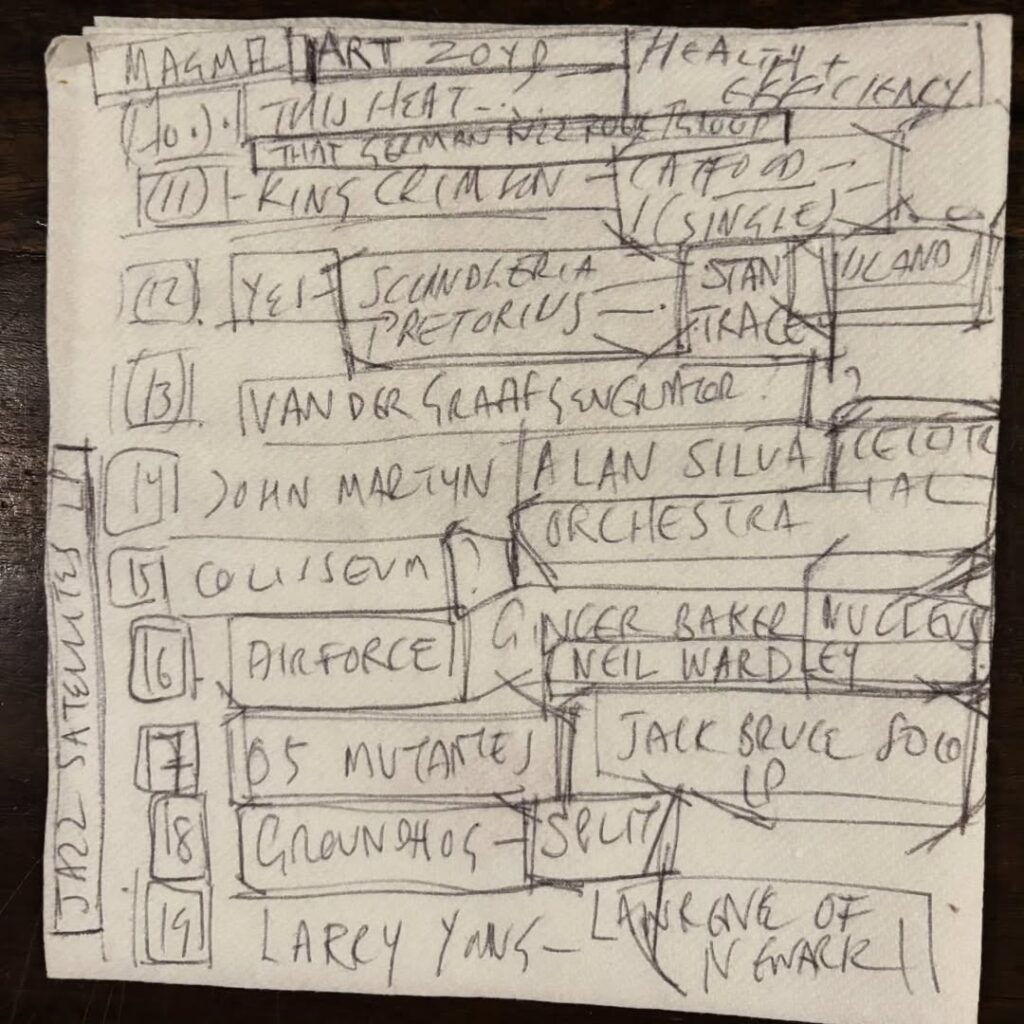 MAGMA ART ZOYD HEALTH +
EFFICIENCY
(10.). THIS HEAT
THAT GERMAN JAZZ ROCK GROUP
(11) - KING CRIMSON - CATFOOD -
(SINGLE)
(12). YES - STAN ISLAND
PRETORIUS - TRACE
(13). VAN DER GRAAF GENERATOR. ?
14 JOHN MARTYN ALAN SILVA CELESTR
IAL
ORCHESTRA
15 COLISSEUM ?
16 AIRFORCE GINGER BAKER NUCLEUS
NEIL WARDLEY
17 OS MUTANTES JACK BRUCE SOLO
LP
18 GROUNDHOG - SPLIT
19 LARRY YOUNG - LAWRENCE OF
NEWARK
JAZZ SATELLITES LP